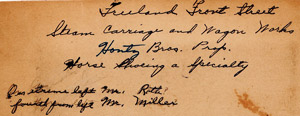 Freeland Front Street
Steam Carriage and Wagon Works
Hontz Bros. Prop.
Horse Shoeing a Specialty
On extreme left Mr. Roth
fourth from left Mr. Millar